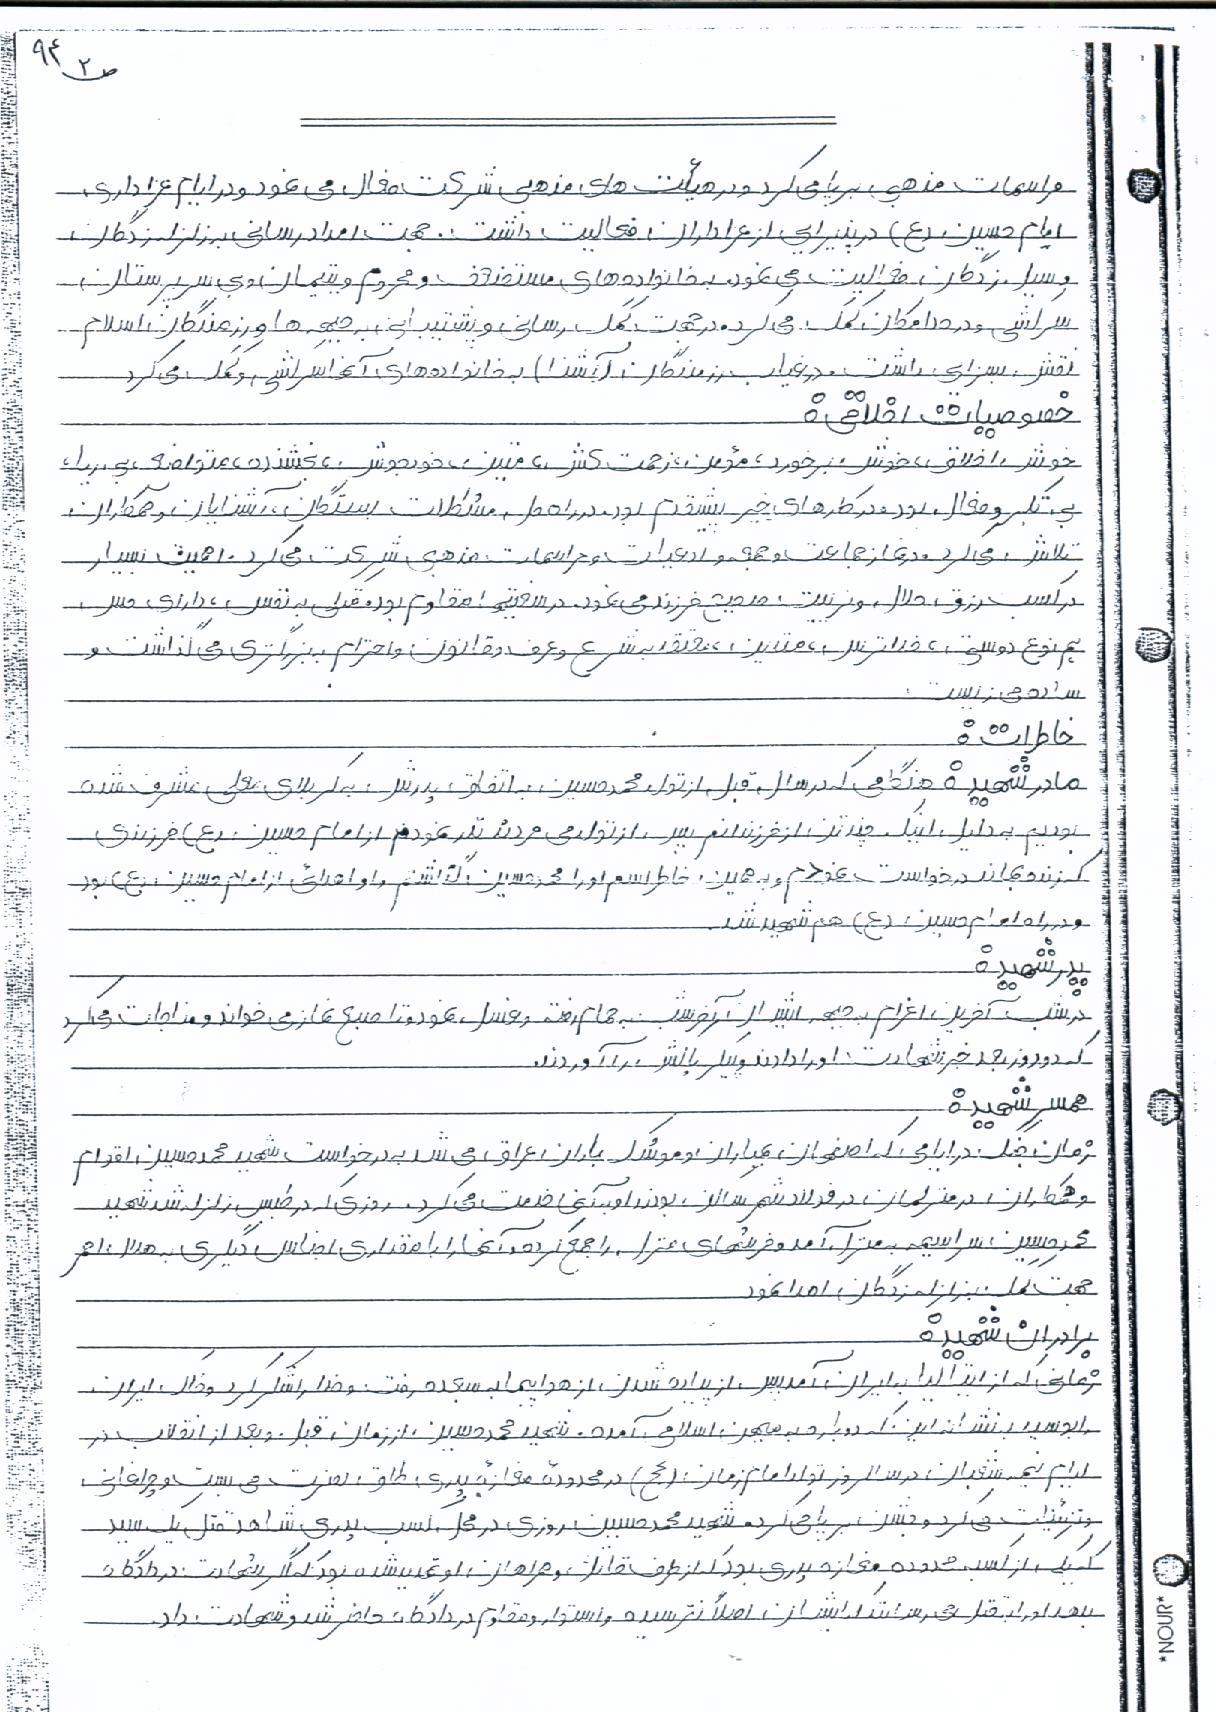 ۹۴
ص ۲
مراسمات مذهبی برپا می کرد و در هیئت های مذهبی شرکت فعال می نمود و در ایام عزاداری
امام حسین (ع) در پذیرایی از عزاداران فعالیت داشت. جهت امداد رسانی به زلزله زدگان
و سیل زدگان فعالیت می نمود. به خانواده های مستضعف و محروم و یتیمان و بی سرپرستان
سرکشی و در حد امکان کمک می کرد. در جهت کمک رسانی و پشتیبانی به جبهه ها و رزمندگان اسلام
نقش بسزایی داشت. در غیاب رزمندگان (آشنا) به خانواده های آنها سرکشی و کمک می کرد
خصوصیات اخلاقی:
خوش اخلاق، خوش برخورد، مؤمن، زحمت کش، متین، خودجوش، بخشنده، متواضع، بی ریا،
بی تکبر و فعال بود. در کارهای خیر پیشقدم بود. در راه حل مشکلات بستگان، آشنایان و همکاران
تلاش می کرد. در نماز جماعت و جمعه و ادعیات و مراسمات مذهبی شرکت می کرد. اهمیت بسیار
در کسب رزق حلال و تربیت صحیح فرزند می نمود. در سختیها مقاوم بود. متکی به نفس، دارای حس
هم نوع دوستی، خداترس، متدین، معتقد به شرع و عرف و قانون و احترام به بزرگتری می گذاشت و
ساده می زیست.
خاطرات:
مادر شهید: هنگامی که در سال قبل از تولد محمدحسین به اتفاق پدرش به کربلای معلی مشرف شده
بودیم به دلیل اینکه چند تن از فرزندانم پس از تولد می مردند نذر نمودم از امام حسین (ع) فرزندی
که زنده بماند درخواست نمودم و به همین خاطر اسم او را محمدحسین گذاشتم و او اهدائی از امام حسین (ع) بود
و در راه امام حسین (ع) هم شهید شد.
پدر شهید:
در شب آخرین اعزام به جبهه ایشان آن شب به حمام رفته و غسل نمود و تا صبح نماز می خواند و مناجات می کرد
که دو روز بعد خبر شهادت او را دادند و پیکر پاکش را آوردند.
همسر شهید:
زمان جنگ در ایامی که اصفهان بمباران و موشک باران عراق می شد به درخواست شهید محمدحسین اقوام
و همکاران در منزلمان در فولادشهر ساکن بودند و او به آنها خدمت می کرد. روزی که در طبس زلزله شد شهید
محمدحسین سراسیمه به منزل آمد و فرشهای منزل را جمع کرده و آنها را با مقداری اجناس دیگری به هلال احمر
جهت کمک به زلزله زدگان اهدا نمود
برادران شهید:
زمانی که از ایتالیا به ایران آمد پس از پیاده شدن از هواپیما به سجده رفت و خدا را شکر کرد و خاک ایران
را بوسید به نشانه این که دوباره به میهن اسلامی آمده. شهید محمدحسین از زمان قبل و بعد از انقلاب در
ایام نیمه شعبان در سالروز تولد امام زمان (عج) در محدوده مغازه پدری طاق نصرت می بست و چراغانی
و تزئینات می کرد و جشن برپا می کرد. شهید محمدحسین روزی در محل کسب پدری شاهد قتل یک سید
که یکی از کسبه محدوده مغازه پدری بود که از طرف قاتل و همراهان او تهدید شده بود که اگر شهادت در دادگاه
بدهد او را به قتل می رسانند که ایشان اصلاً نترسیده و استوار و مقاوم در دادگاه حاضر شد و شهادت داد.
*NOUR*